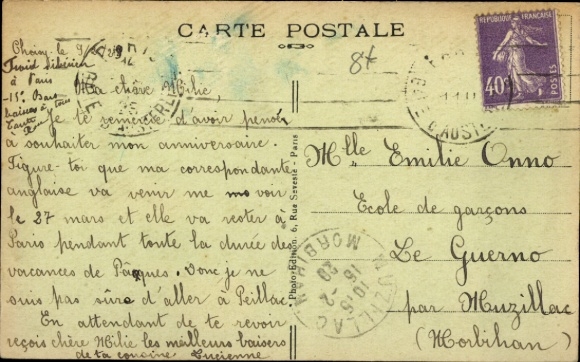 CARTE POSTALE
Choisy le 9
Froid sibérien
à Paris
-15°. Bons
baisers à tous
8f
RÉPUBLIQUE FRANÇAISE
40c
POSTES
Ma chère Milie,
Je te remercie d'avoir pensé
à souhaiter mon anniversaire.
Figure-toi que ma correspondante
anglaise va venir me voir
le 27 mars et elle va rester à
Paris pendant toute la durée des
vacances de Pâques. Donc je ne
suis pas sûre d'aller à Peillac.
En attendant de te revoir
reçois chère Milie les meilleurs baisers
de ta cousine Lucienne
Photo-Edition, 6, Rue Seveste - Paris
Mlle Emilie Onno
Ecole de garçons
Le Guerno
par Muzillac
(Morbihan)
MUZILLAC
15 10-2
29
MORBIHAN